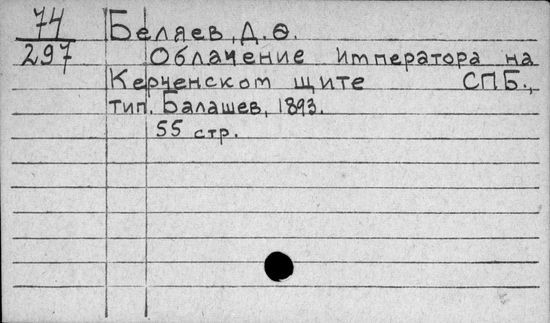 74
297
Беляев, Д. Ѳ.
Облачение императора на
Керченском щите СПБ.,
тип. Балашев, 1893.
55 стр.